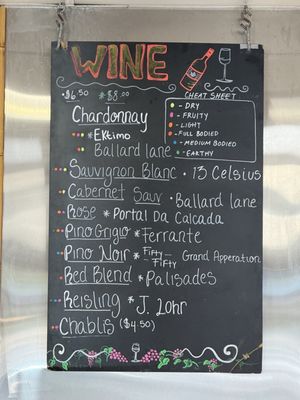 WINE
•$6.50 *$8.00
CHEAT SHEET
- DRY
- FRUITY
- LIGHT
- FULL BODIED
- MEDIUM BODIED
- EARTHY
Chardonnay
*Ektimo
Ballard lane
Sauvignon Blanc • 13 Celsius
Cabernet Sauv • Ballard lane
Rose * Portal Da Calcada
Pino Grigio * Ferrante
Pino Noir * Fifty Fifty Grand Apperation
Red Blend * Palisades
Reisling * J. Lohr
Chablis ($4.50)